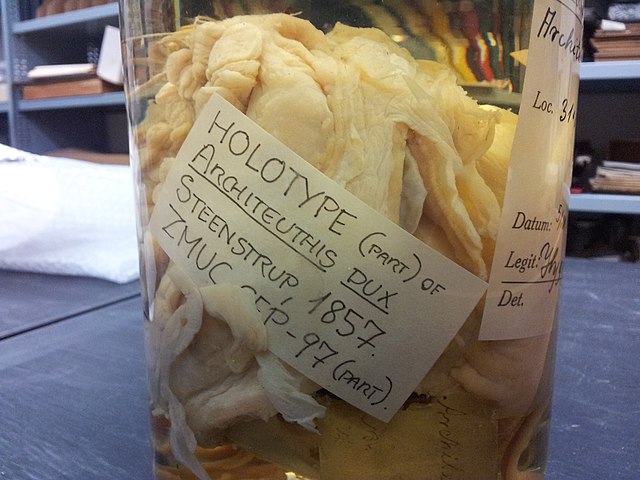 HOLOTYPE (PART) OF
ARCHITEUTHIS DUX
STEENSTRUP, 1857.
ZMUC CEP-97 (PART).
Loc. 31
Datum:
Legit.
Det.